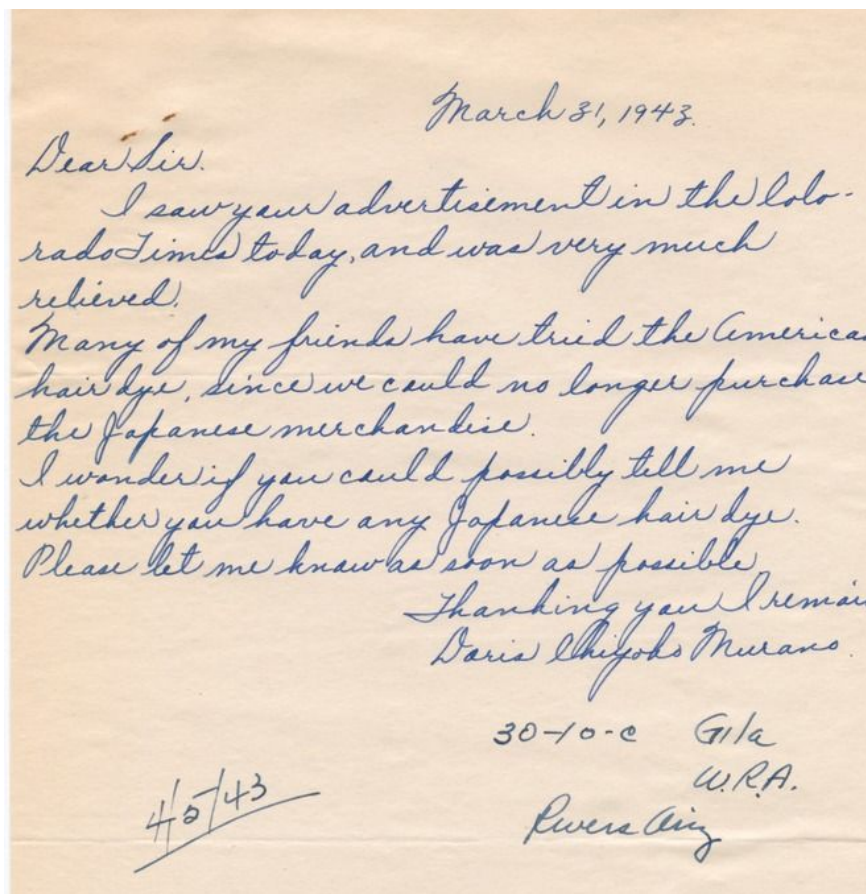 March 31, 1943.
Dear Sir.
I saw your advertisement in the Colo-
rado Times today, and was very much
relieved.
Many of my friends have tried the America
hair dye, since we could no longer purchase
the Japanese merchandise.
I wonder if you could possibly tell me
whether you have any Japanese hair dye.
Please let me know as soon as possible
Thanking you I remai
Doris Chiyoko Murano.
30-10-c Gila
W.R.A.
Rivers Ariz
4/5/43